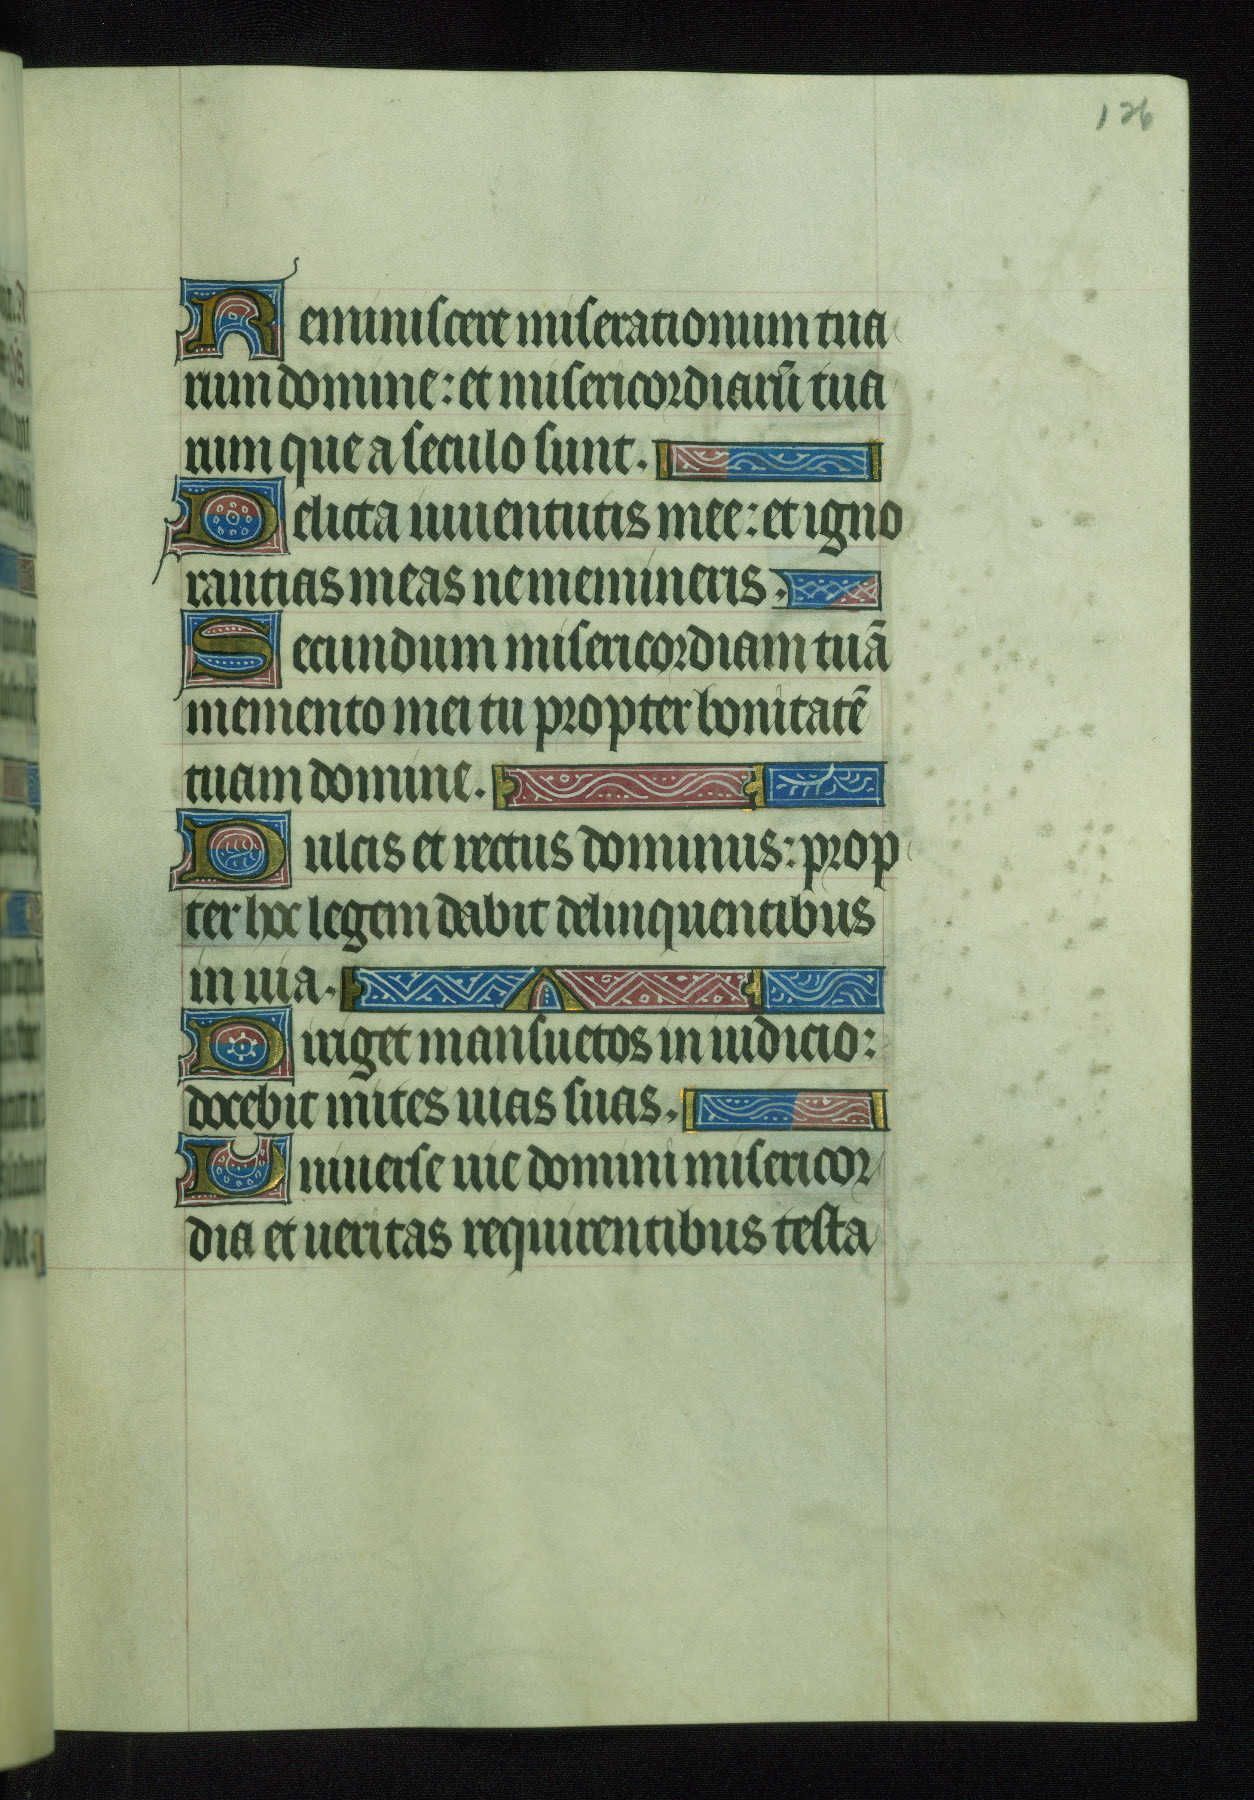 126
Reminiscere miserationum tua
rum domine: et misericordiarū tua
rum que a seculo sunt.
Delicta iuuentutis mee: et igno
rantias meas ne memineris.
Secundum misericordiam tuā
memento mei tu propter bonitatē
tuam domine.
Dulcis et rectus dominus: prop
ter hoc legem dabit delinquentibus
in uia.
Diriget mansuetos in iudicio:
docebit mites uias suas.
Uniuerse uie domini misericor
dia et ueritas requirentibus testa